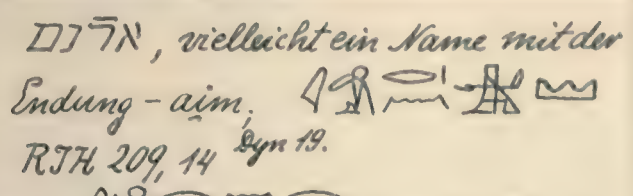 אר̄נם, vielleicht ein Name mit der
Endung - aim;
RJH 209, 14 Dyn 19.